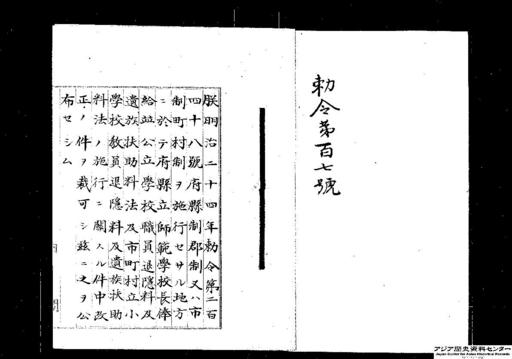 勅令第百七號
朕明治二十四年勅令第二百
四十八號府縣制郡制又ハ市
制町村制ヲ施行セサル地方
ニ於テ府縣立師範學校長俸
給竝公立學校職員退隱料及
遺族扶助料法及市町村立小
學校教員退隱料及遺族扶助
料法ノ施行ニ關スル件中改
正ノ件ヲ裁可シ茲ニ之ヲ公
布セシム
アジア歴史資料センター
Japan Center for Asian Historical Records